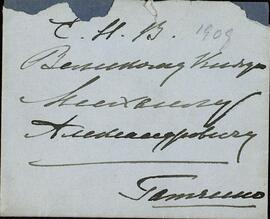 Е. И. В. 1909
Великому Князю
Михаилу
Александровичу
Гатчино